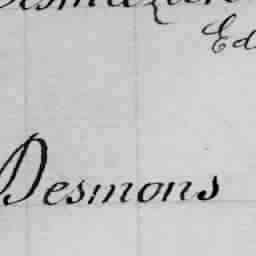 Ed
Desmons